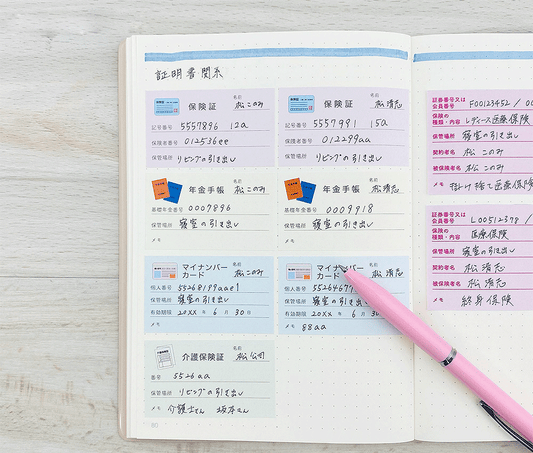 証明書関系
保険証 名前 松 このみ
記号番号 5557896 12a
保険者番号 012536ee
保管場所 リビングの引き出し
保険証 名前 松 清志
記号番号 5557991 15a
保険者番号 012299aa
保管場所 リビングの引き出し
年金手帳 名前 松 このみ
基礎年金番号 0007896
保管場所 寝室の引き出し
メモ
年金手帳 名前 松 清志
基礎年金番号 0009918
保管場所 寝室の引き出し
メモ
マイナンバー
カード 名前 松 このみ
個人番号 55268199aae1
保管場所 寝室の引き出し
有効期限 20XX 年 6 月 30 日
メモ
マイナンバー
カード 名前 松 清志
個人番号
保管場所 寝室の引き出し
有効期限 20XX 年 6 月 30 日
メモ 88aa
介護保険証 名前 松 公司
番号 5526aa
保管場所 リビングの引き出し
メモ 介護士さん 坂本さん
証券番号又は
会員番号 F00123452 / 00
保険の
種類・内容 レディース医療保険
保管場所 寝室の引き出し
契約者名 松 このみ
被保険者名 松 このみ
メモ 掛け捨て医療保険
証券番号又は
会員番号 L00512379 /
保険の
種類・内容 医療保険
保管場所 寝室の引き出し
契約者名 松 清志
被保険者名 松 清志
メモ 終身保険